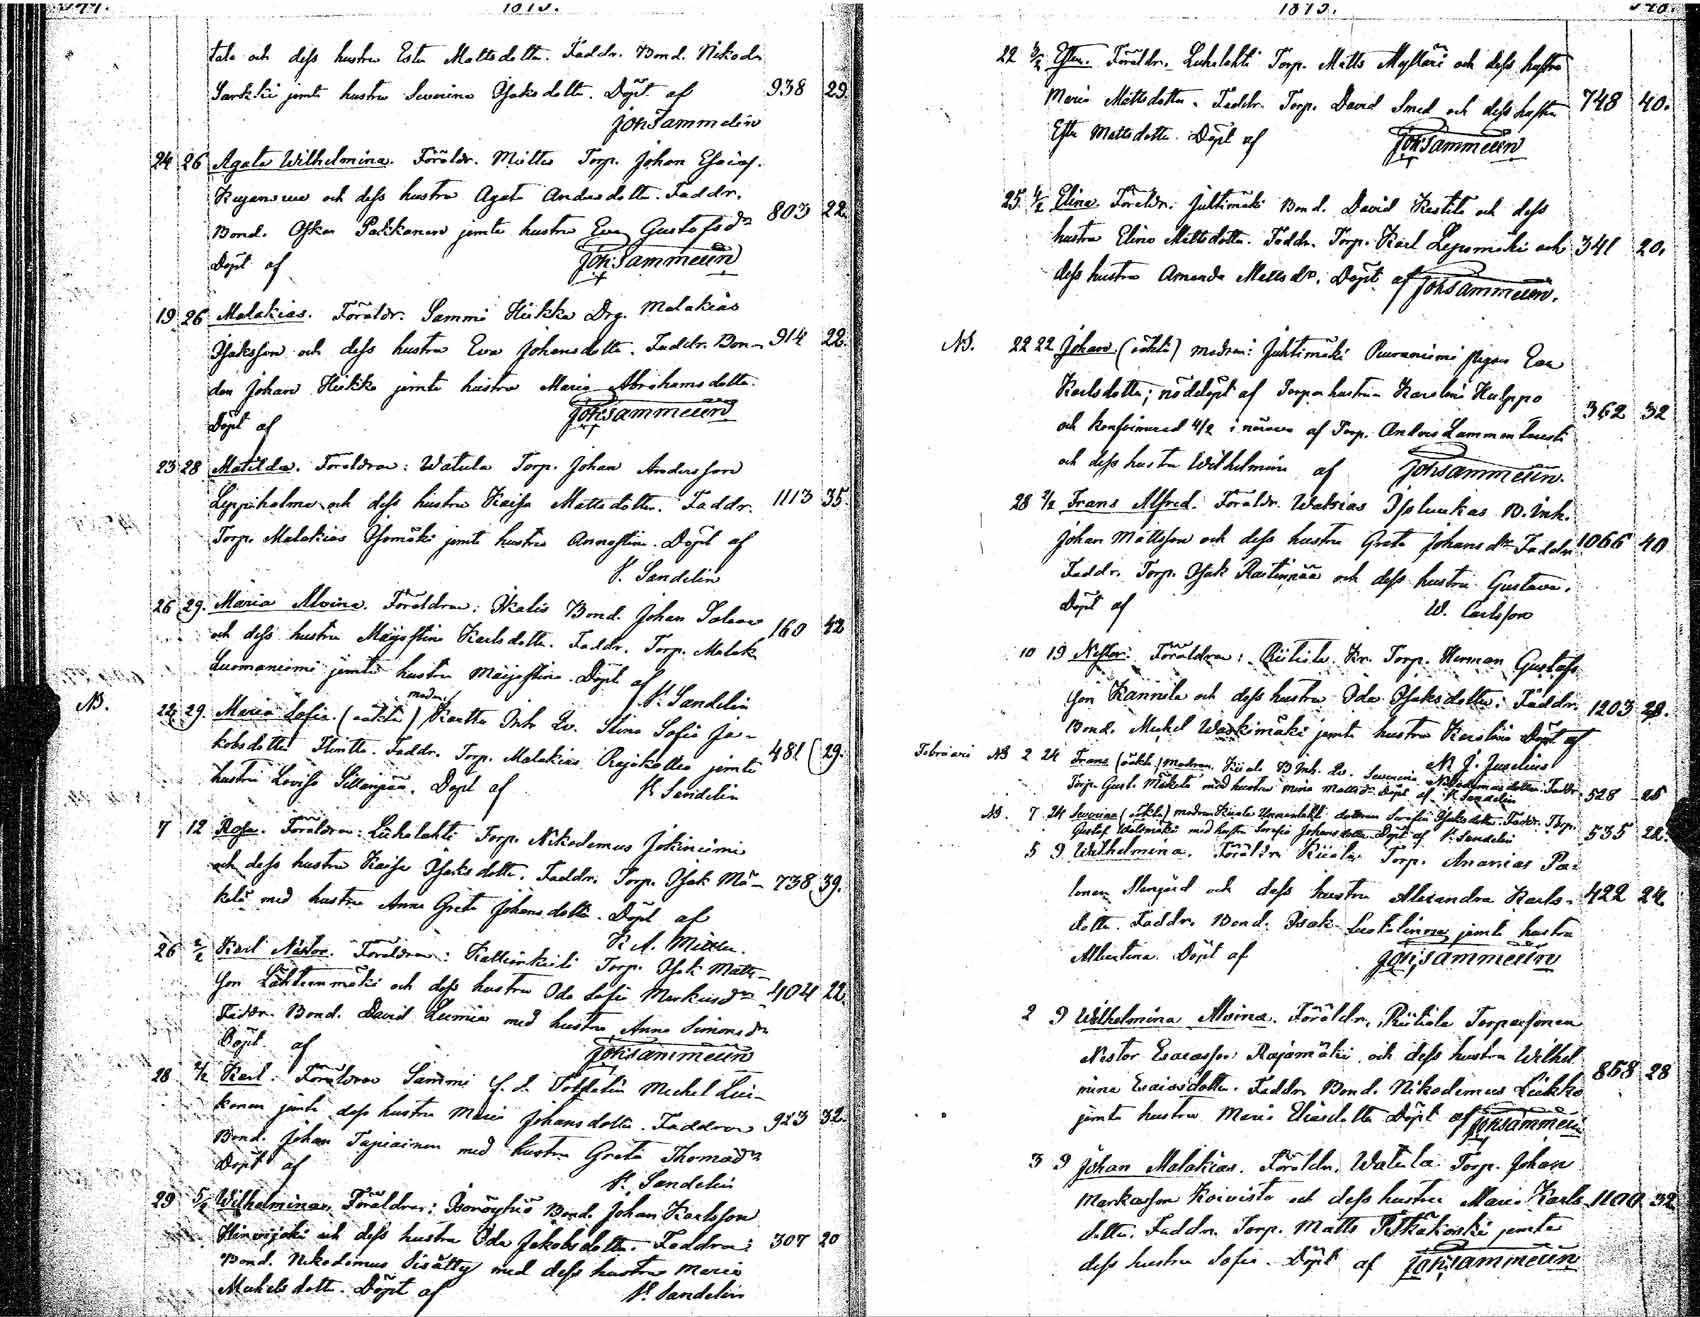 1875.
tala och dess hustru Ester Mattsdotter. Faddr. Bond. Nikod.
Sarkki jemte hustru Severina Isaksdotter. Döpt af 938 29.
Joh Sammelin
24 26 Agata Wilhelmina. Föräldr. Torp. Johan Esaias.
och dess hustru Agata Andersdotter. Faddr.
Bond. Oskar Pakkanen jemte hustru Eva Gustafsdr 803 22.
Döpt af Joh Sammelin
19 26 Malakias. Föräldr. Sammi Heikka Drg. Malakias
Isaksson och dess hustru Eva Johansdotter. Faddr. Bon- 914 22.
den Johan Heikka jemte hustru Maria Abrahamsdotter.
Döpt af Joh Sammelin
23 28 Matilda. Föräldrar: Watula Torp. Johan Andersson
Leppiholma och dess hustru Kaisa Mattsdotter. Faddr. 1113 35.
Torp. Malakias Isomäki jemte hustru Annastina. Döpt af
V. Sandelin
26 29. Maria Alvina. Föräldrar: Nikalis Bond. Johan Salava
och dess hustru Majastina Karlsdotter. Faddr. Torp. Malak. 160 42
Luomaniemi jemte hustru Maijastina. Döpt af
V. Sandelin
NB. 22 29. Maria Sofia. (oäkta) modren Kartta Inh. Qv. Stina Sofia Ja-
kobsdotter Faddr. Torp. Malakias Rajakallio jemte 481 29.
hustru Lovisa Sillanpää. Döpt af V. Sandelin
7 12 Rosa. Föräldrar: Liikalahti Torp. Nikodemus Jokiniemi
och dess hustru Kaisa Isaksdotter. Faddr. Torp. Isak Mä- 738 39.
kelä med hustru Anna Greta Johansdotter. Döpt af
26 2/2 Karl Nestor. Föräldrar: Torp. Isak Matts-
son Lähteenmäki och dess hustru Ida Sofia Markusdr 404 22
Faddr. Bond. David Lumia med hustru Anna Simonsdr
Döpt af Joh Sammelin
28 2/2 Karl. Föräldrar Sammi Michel Lui-
konen jemte dess hustru Maria Johansdotter. Faddrar 923 32.
Bond. Johan Tapiainen med hustru Greta Thomasdr
Döpt af V. Sandelin
29 5/2 Wilhelmina. Föräldrar: Bond. Johan Karlsson
Hirvijoki och dess hustru Ida Jakobsdotter. Faddrar: 307 20
Bond. Nikodemus Sisättö med dess hustru Maria
Mickelsdotter. Döpt af V. Sandelin
1875.
22 Ester. Föräldr. Liikalahti Torp. Matts Mylläri och dess hustru
Maria Mattsdotter. Faddr. Torp. David Smed och dess hustru 748 40.
Ester Mattsdotter. Döpt af Joh Sammelin
25 Elina. Föräldr. Juhtimäki Bond. David Kestilä och dess
hustru Elina Mattsdotter. Faddr. Torp. Karl Lepomäki och 341 20.
dess hustru Amanda Mattsdr. Döpt af Joh Sammelin.
NB. 22 22 Johan. (oäkta) modren: Juhtimäki pigan Eva
Karlsdotter; nöddöpt af Torparhustrun Karolina Kulppo
och konfirmerad 4/2 i närvaro af Torp. Anders Lammentausta 362 32
och dess hustru Wilhelmina af Joh Sammelin.
28 2/2 Frans Alfred. Föräldr. B. Inh.
Johan Mattsson och dess hustru Greta Johansdtr Faddr. 1066 40
Faddr. Torp. Isak Rastinpää och dess hustru Gustava.
Döpt af W. Carlsson
10 19 Nestor. Föräldrar: Riitiala Kr. Torp. Herman Gustafs
son Kannela och dess hustru Ida Isaksdotter. Faddr. 1203 29.
Bond. Michel Warkimäki jemte hustru Karolina Döpt af
Februari NB 2 24 Frans (oäkta) modren Kiiala B Inh. Qv. Severina Nikodemusdotter. Faddr.
Torp. Gust. Mäkelä med hustru Maria Mattsdr Döpt af V. Sandelin 528 25
NB. 7 24 Severina (oäkta) modren Kiiala dottren Serafia Isaksdotter. Faddr. Torp.
Gustaf med hustru Serafia Johansdotter. Döpt af V. Sandelin 535 22.
5 9 Wilhelmina. Föräldr. Kiiala Torp. Ananias Pa-
lonen och dess hustru Alexandra Karls- 422 24
dotter. Faddr. Bond. Isak jemte hustru
Albertina. Döpt af Joh Sammelin
2 9 Wilhelmina Alvina. Föräldr. Riitiala Torparsonen
Nestor Esaiasson Rajamäki och dess hustru Wilhel-
mina Esaiasdotter. Faddr. Bond. Nikodemus Liukko 858 28
jemte hustru Maria Eliasdotter Döpt af Joh Sammelin
3 9 Johan Malakias. Föräldr. Watula Torp. Johan
Markusson Koivisto och dess hustru Maria Karls- 1100 32
dotter. Faddr. Torp. Matts Pitkäkoski jemte
dess hustru Sofia. Döpt af Joh Sammelin